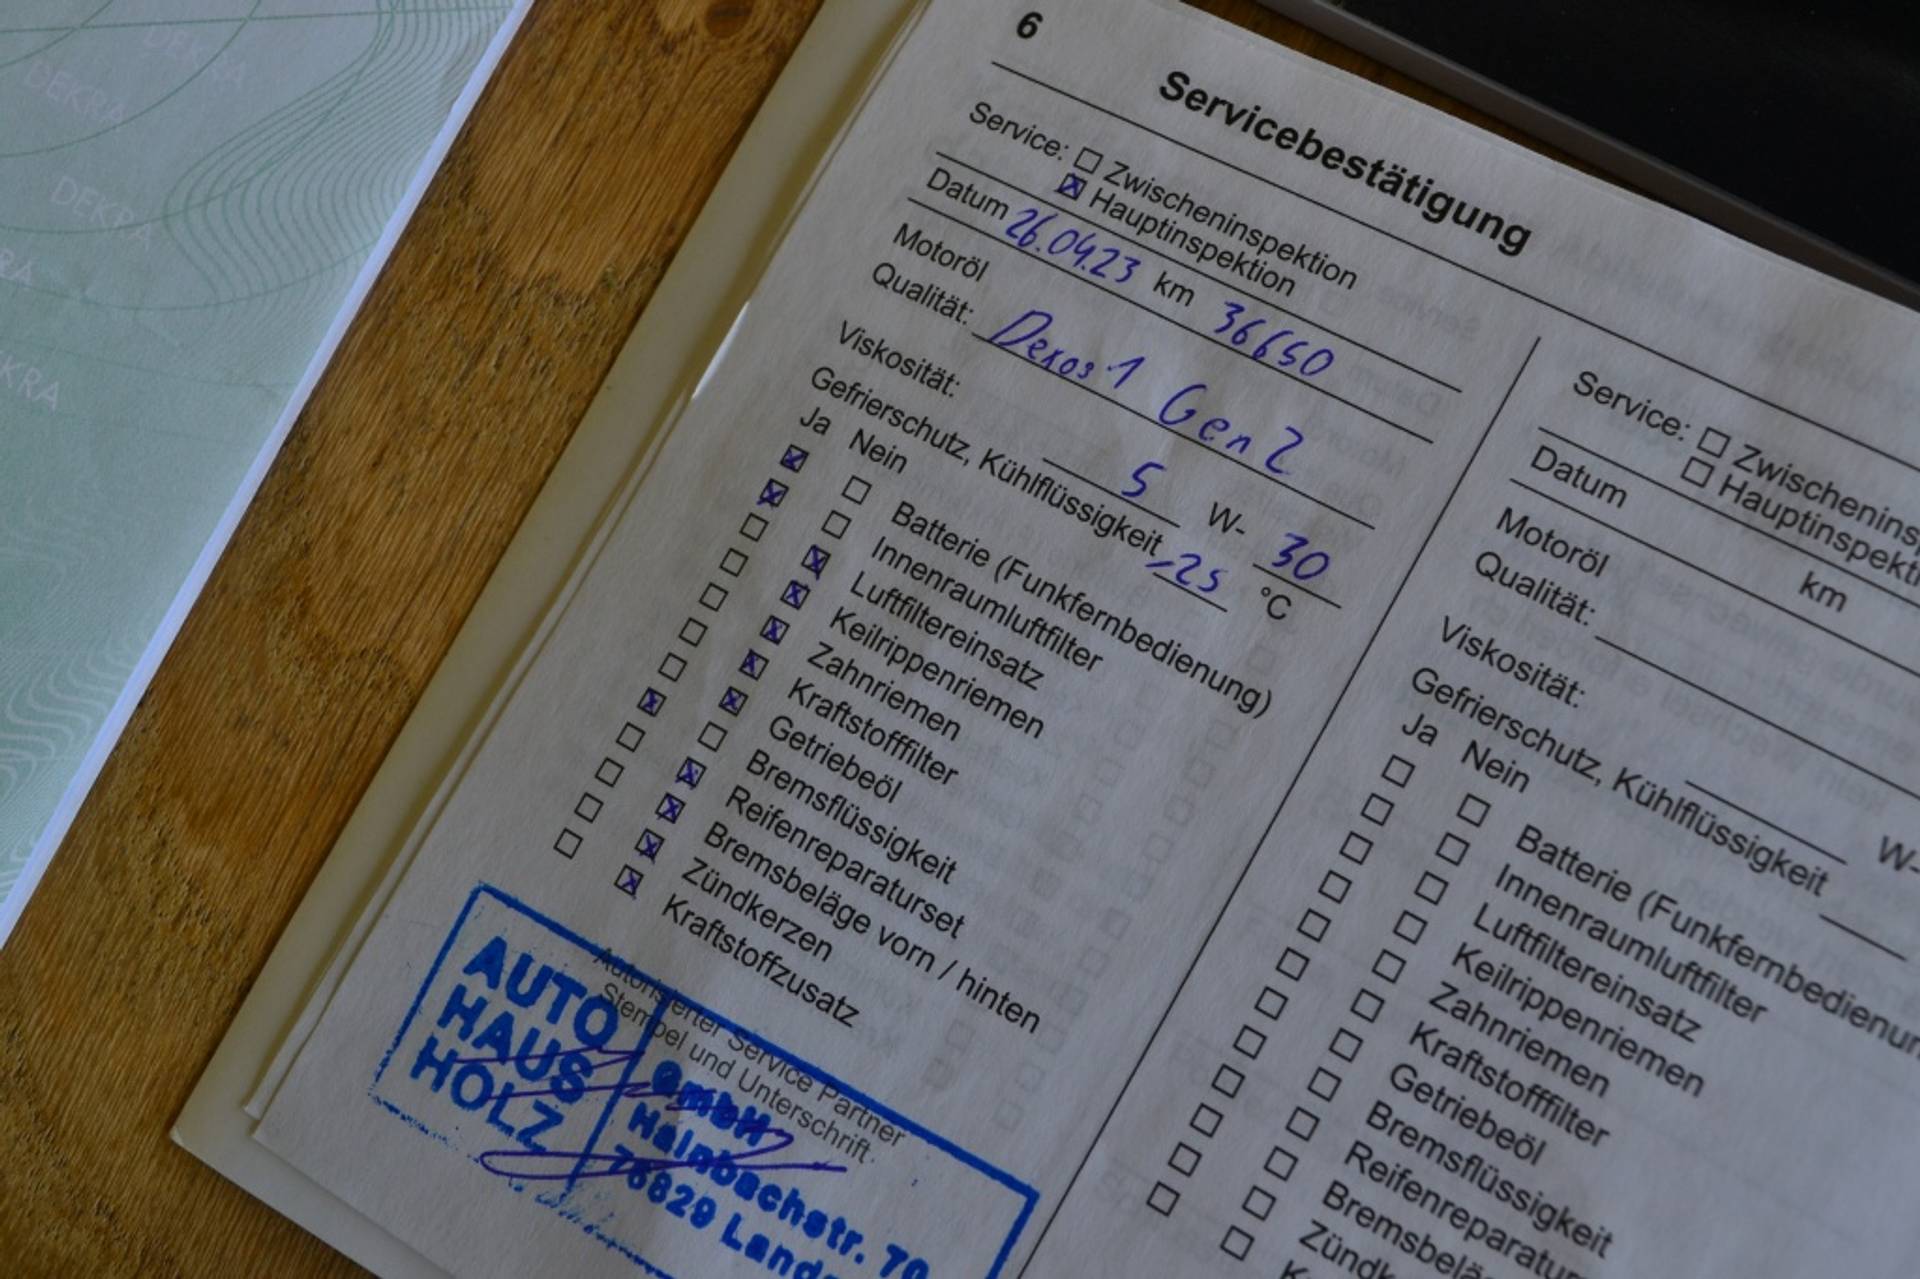 6
Servicebestätigung
Service: Zwischeninspektion
Hauptinspektion
Datum 26.04.23 km 36650
Motoröl
Qualität: Dexos 1 Gen 2
Viskosität: 5 W- 30
Gefrierschutz, Kühlflüssigkeit -25 °C
Ja Nein
Batterie (Funkfernbedienung)
Innenraumluftfilter
Luftfiltereinsatz
Keilrippenriemen
Zahnriemen
Kraftstofffilter
Getriebeöl
Bremsflüssigkeit
Reifenreparaturset
Bremsbeläge vorn / hinten
Zündkerzen
Kraftstoffzusatz
Autorisierter Service Partner
Stempel und Unterschrift
AUTO
HAUS
HOLZ
GmbH
Hainbachstr. 70
76829
Service: Zwischeninsp
Hauptinspekti
Datum km
Motoröl
Qualität:
Viskosität: W-
Gefrierschutz, Kühlflüssigkeit
Ja Nein
Batterie (Funkfernbedienun
Innenraumluftfilter
Luftfiltereinsatz
Keilrippenriemen
Zahnriemen
Kraftstofffilter
Getriebeöl
Bremsflüssigkeit
Reifenreparatu
Bremsbelä
Zündk
DEKRA
DEKRA
DEKRA
RA
EKRA